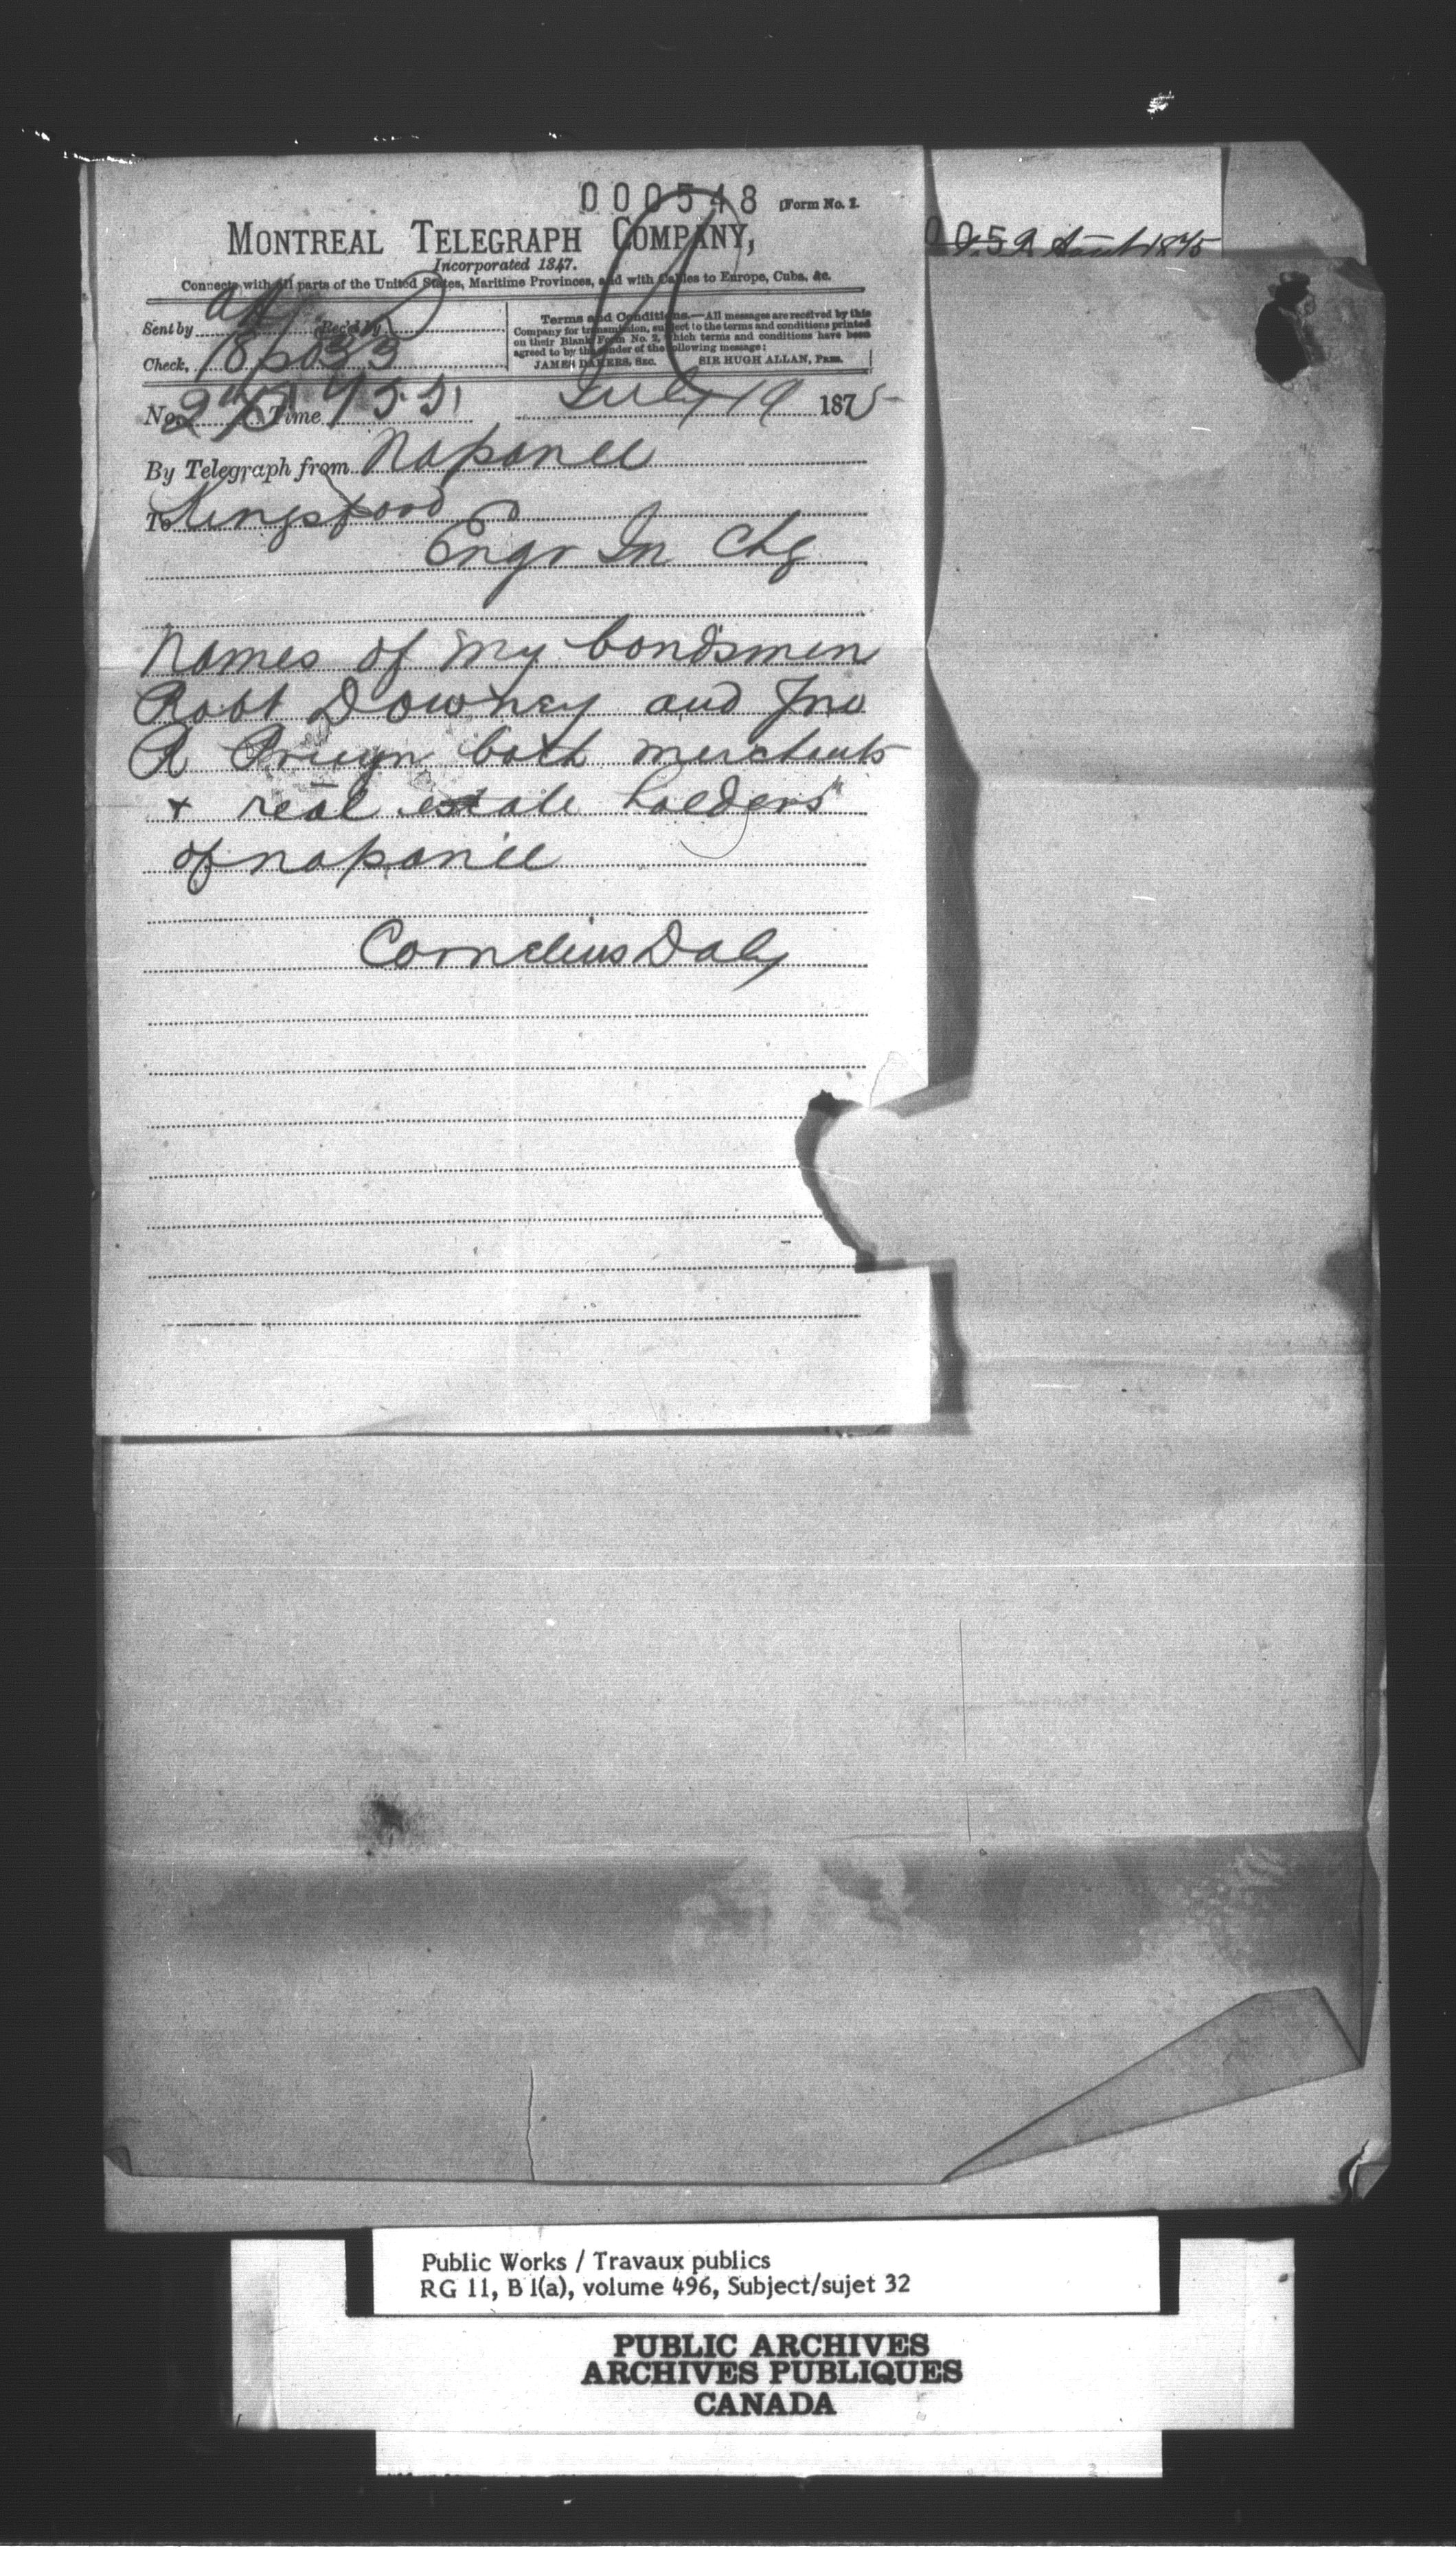 000548 [Form No. 1.
MONTREAL TELEGRAPH COMPANY,
Incorporated 1847.
Connects with all parts of the United States, Maritime Provinces, and with Cables to Europe, Cuba, &c.
Sent by Rec'd by
Check, 18
Terms and Conditions.—All messages are received by this
Company for transmission, subject to the terms and conditions printed
on their Blank Form No. 2, which terms and conditions have been
agreed to by the sender of the following message:
JAMES DAKERS, Sec. SIR HUGH ALLAN, Pres.
No. Time July 19 1875
By Telegraph from Napanee
To Kingsford
Engr In Chg
Names of my bondsmen
Robt Downey and Jno
A Pruyn both merchants
+ real estate holders
of napanee
Cornelius Daly
1875
Public Works / Travaux publics
RG 11, B 1(a), volume 496, Subject/sujet 32
PUBLIC ARCHIVES
ARCHIVES PUBLIQUES
CANADA